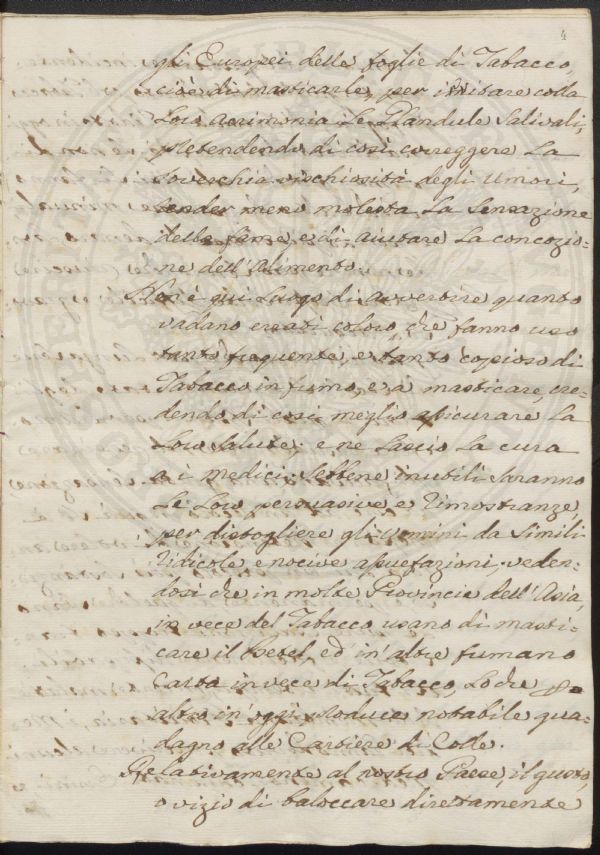 4
gli Europei delle foglie di Tabacco,
cioè di masticarle, per irritare colla
Loro acrimonia Le Glandule Salivali,
pretendendo di così correggere La
Soverchia vischiosità degli Umori,
render meno molesta La Sensazione
della fame, e di aiutare La concozio=
ne dell'Alimento.
Non è qui Luogo di avvertire quanto
vadano errati coloro, che fanno uso
tanto frequente, e tanto copioso di
Tabacco in fumo, e a masticare, cre=
dendo di così meglio assicurare La
Loro Salute; e ne Lascio La cura
a i Medici, Sebbene inutili Saranno
Le Loro persuasive e Rimostranze,
per distogliere gli Uomini da Simili
Ridicole e nocive assuefazioni, veden=
dosi che in molte Provincie dell'Asia,
in vece del Tabacco usano di masti=
care il Betel, ed in altre fumano
Carta in vece di Tabacco, Lo che
altro in oggi produce notabile gua=
dagno alle Cartiere di Colle.
Relativamente al nostro Paese, il gusto,
o vizio di baloccare direttamente